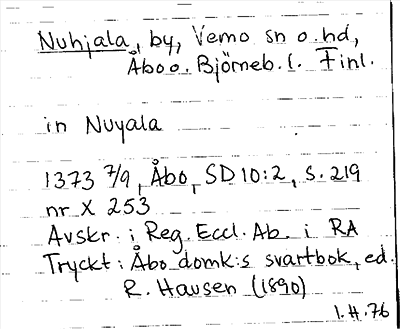 Nuhjala, by, Vemo sn o. hd,
Åbo o. Björneb. l. Finl.
in Nuyala
1373 7/9, Åbo, SD 10:2, s. 219
nr X 253
Avskr. i Reg. Eccl. Ab. i RA
Tryckt: Åbo domk:s svartbok, ed.
R. Hausen (1890)
1.H.76